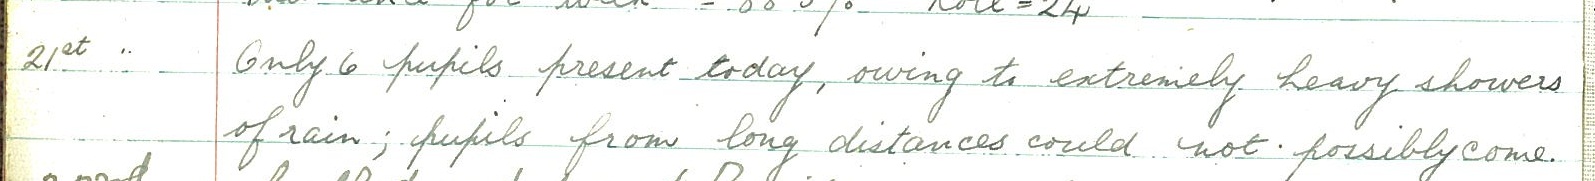 for week = 88.5% Roll = 24
21st " Only 6 pupils present today, owing to extremely heavy showers
of rain; pupils from long distances could not possibly come.